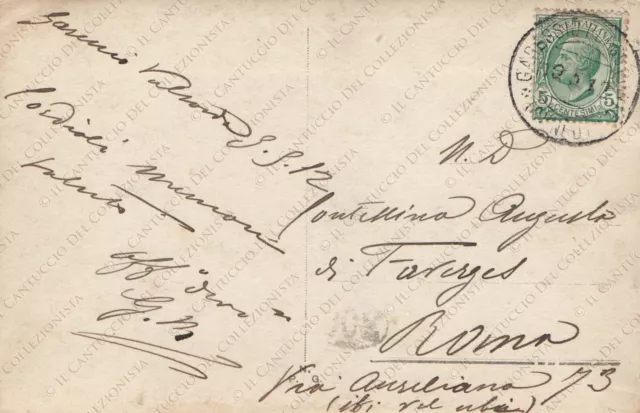 Garessio Valsorda 8.8.12
Cordiali memori
saluti
aff
G. M
N. D
Contessina Augusta
di Faverges
Roma
Via Aureliana 73
(ibi vel ubi)
POSTE ITALIANE
5 CENTESIMI 5
GAR
© IL CANTUCCIO DEL COLLEZIONISTA